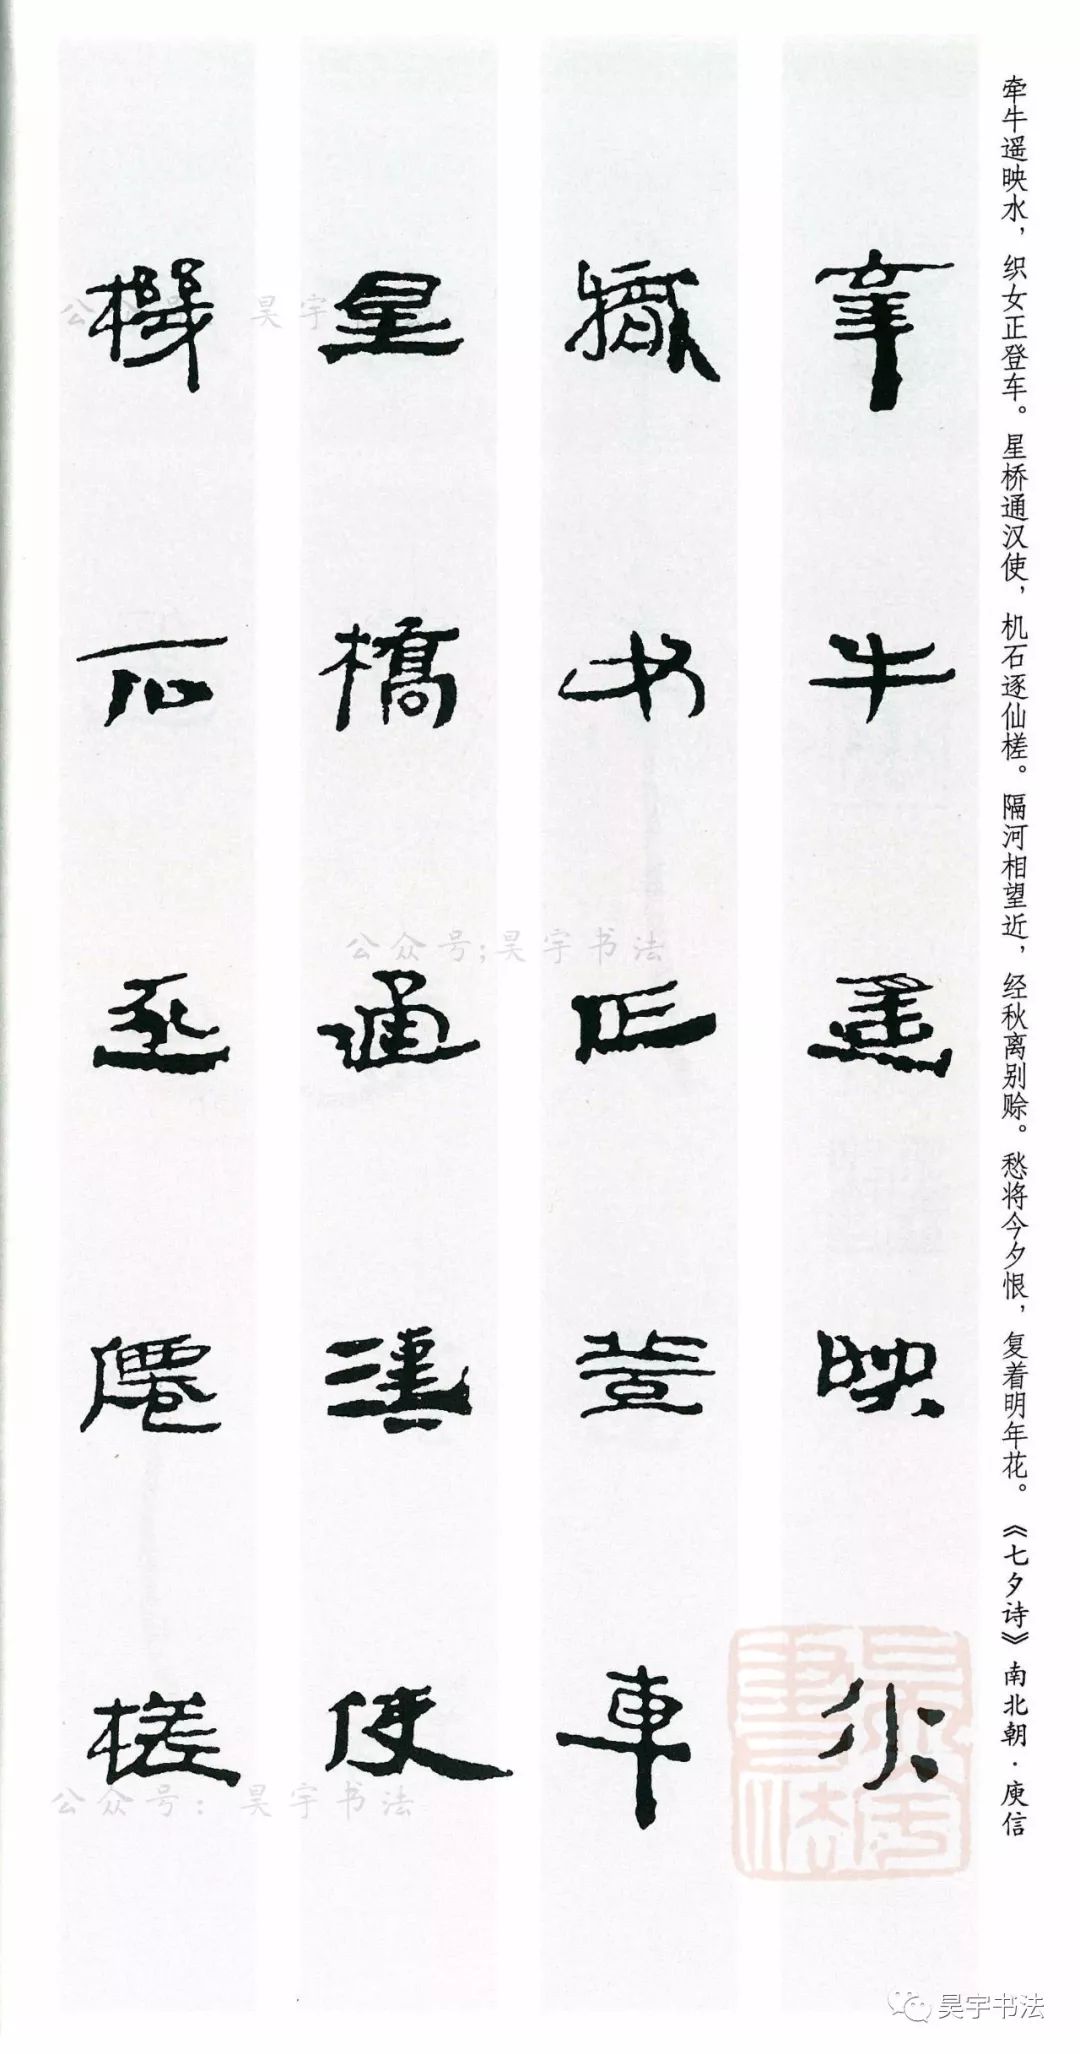 牵牛遥映水，织女正登车。星桥通汉使，机石逐仙槎。隔河相望近，经秋离别赊。愁将今夕恨，复着明年花。《七夕诗》南北朝·庾信
牽牛遥映水
織女正登車
星橋通漢使
機石逐僊槎
公众号;昊宇书法
公众号：昊宇书法
昊宇书法